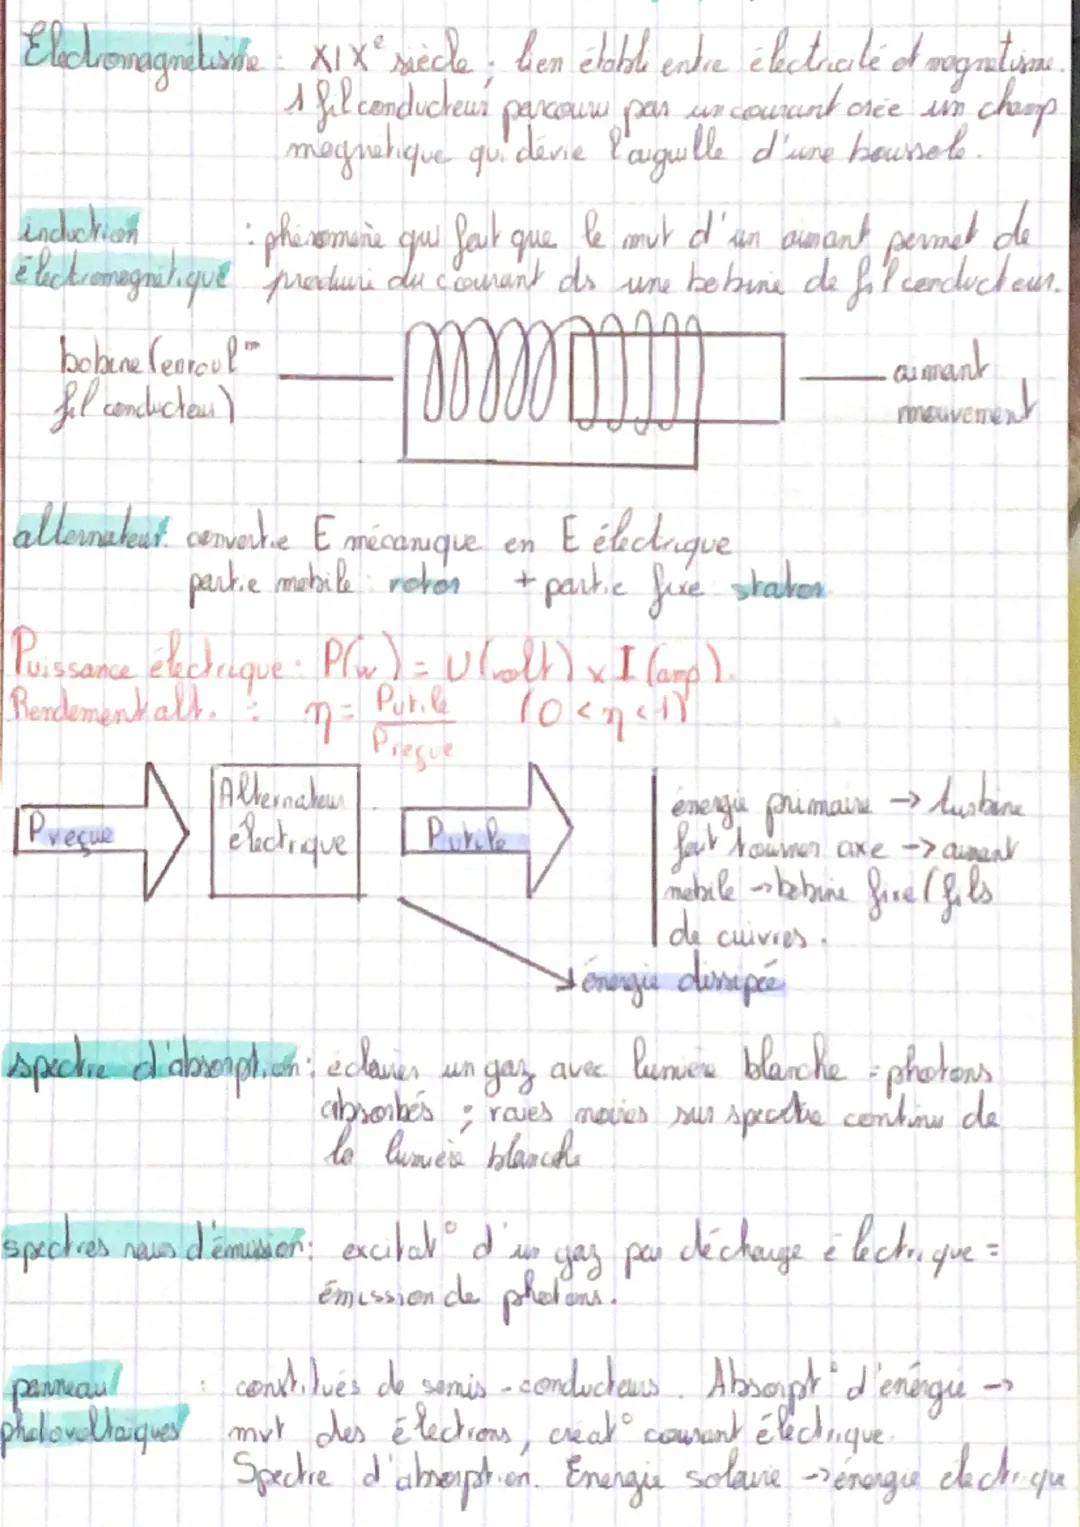 Electromagnétisme : XIXe siècle ; lien établi entre électricité et magnetisme.
1 fil conducteur parcouru par un courant crée un champ
magnetique qui dévie l'aiguille d'une boussole.
induction : phénomène qui fait que le mvt d'un aimant permet de
électromagnétique produire du courant ds une bobine de fil conducteur.
bobine (enroulm
fil conducteur)
aimant
mouvement
alternateur : convertie E mécanique en E électrique
partie mobile : rotor + partie fixe : stator
Puissance électrique : P(w) = U(volt) x I (amp).
Rendement alt. : η = Putile / Preçue (0 < η < 1)
Preçue
Alternateur
électrique
Putile
énergie primaire -> turbine
fait tourner axe -> aimant
mobile -> bobine fixe (fils
de cuivres.
énergie dissipée
spectre d'absorption : éclairer un gaz avec lumière blanche = photons
absorbés ; raies noires sur spectre continu de
la lumière blanche
spectres raies d'émission : excitat° d'un gaz par décharge électrique =
émission de photons.
panneau : constitués de semis-conducteurs. Absorpt° d'énergie ->
photovoltaiques mvt des électrons, créat° courant électrique.
Spectre d'absorption. Energie solaire -> énergie électrique